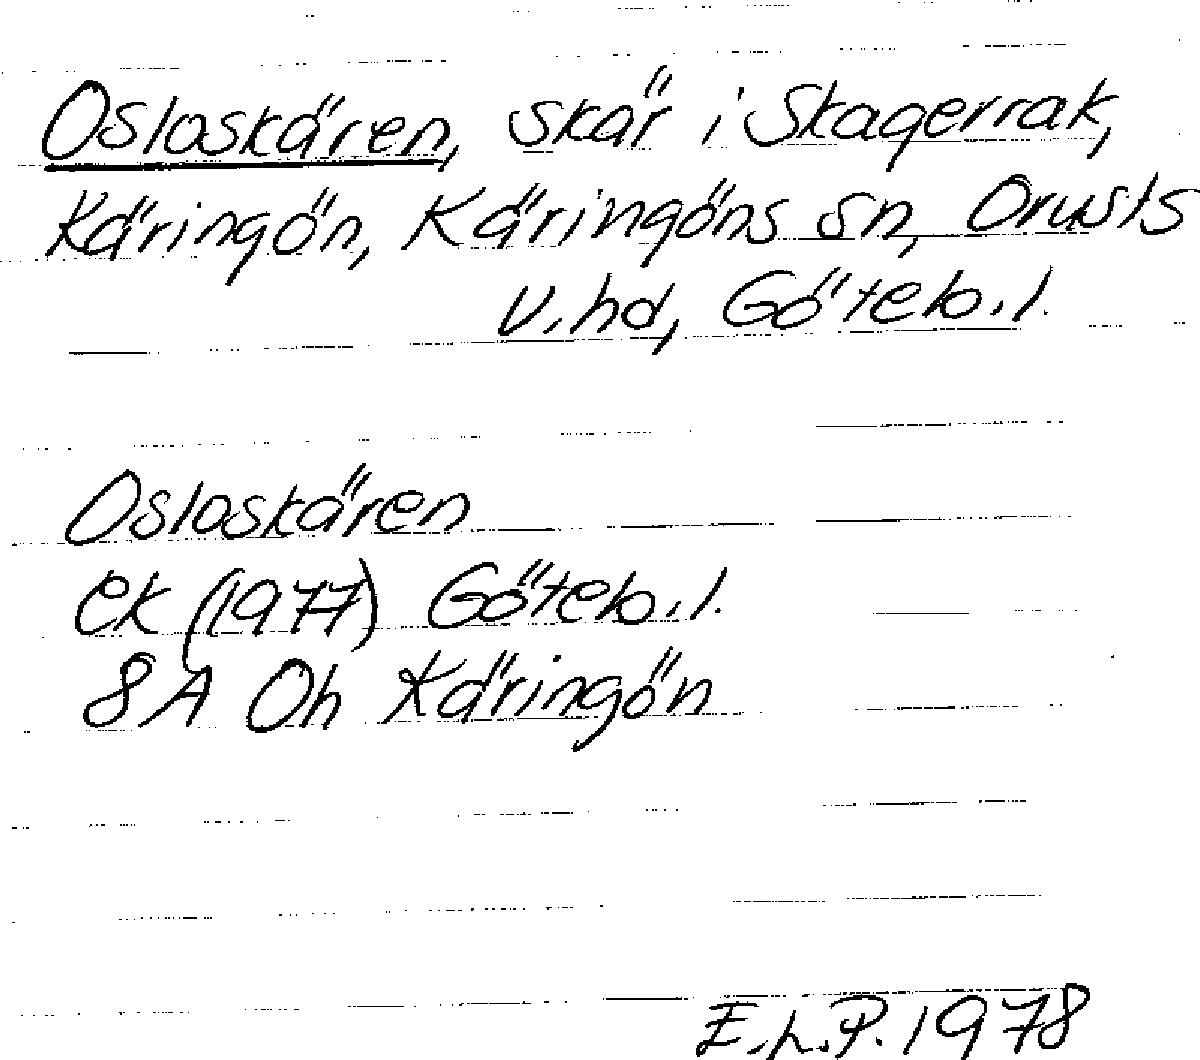 Osloskären, skär i Skagerrak,
Käringön, Käringöns sn, Orusts
v. hd, Göteb. l.
Osloskären
ek (1977) Göteb. l.
8A Oh Käringön
E.L.P. 1978